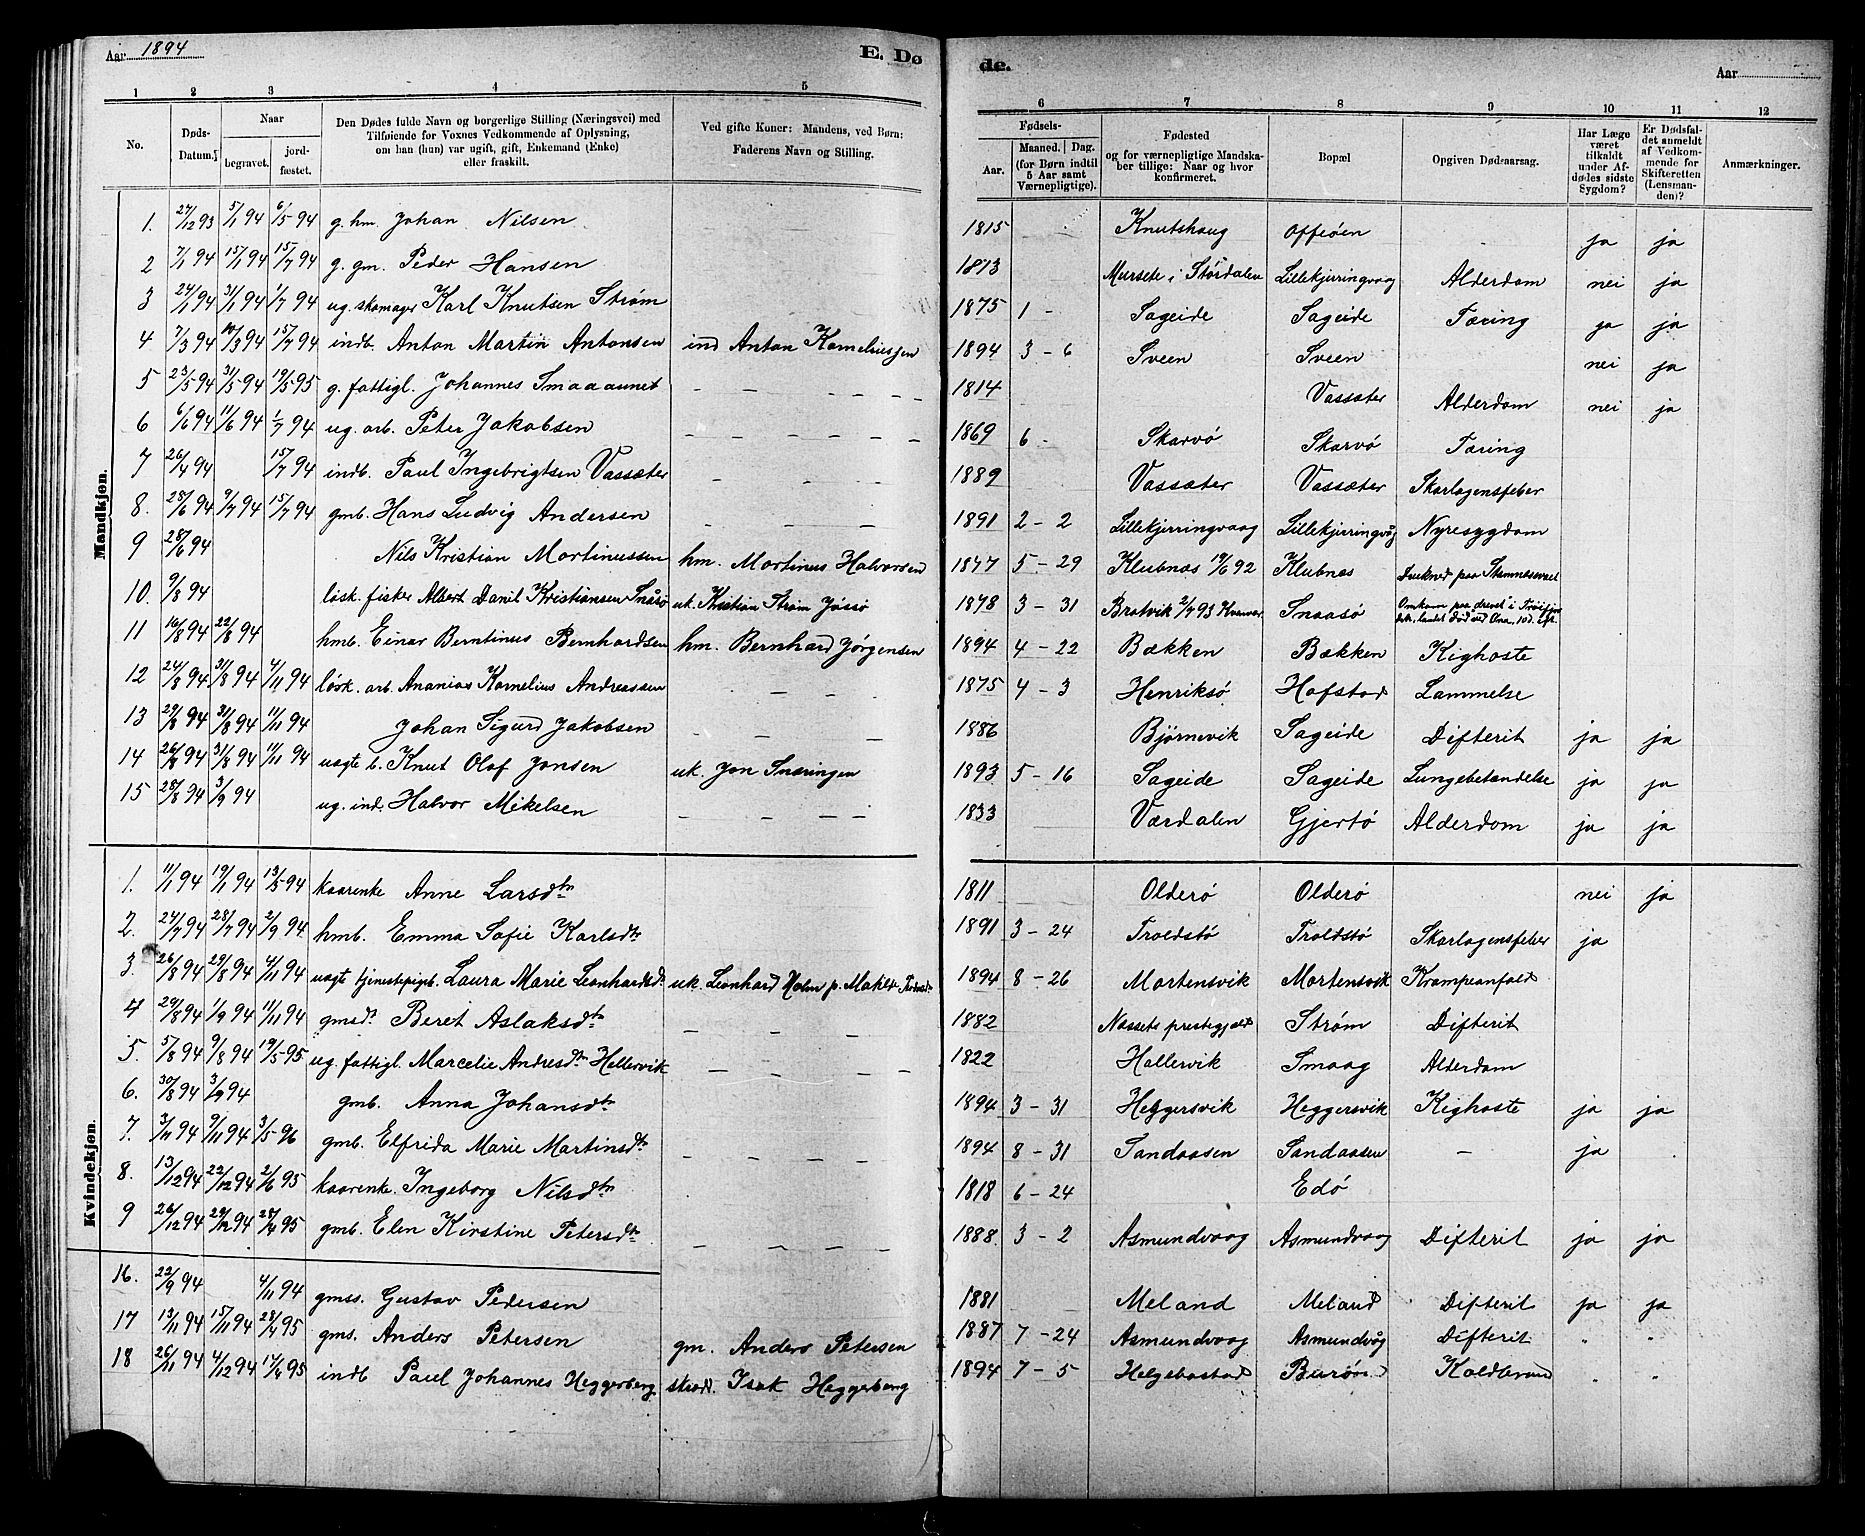 Aar 1894
E. Dø
de.
Aar
1 2 3 4 5 6 7 8 9 10 11 12
No.
Døds-Datum.
Naar
begravet.
jord-fæstet.
Den Dødes fulde Navn og borgerlige Stilling (Næringsvei) med
Tilføiende for Voxnes Vedkommende af Oplysning,
om han (hun) var ugift, gift, Enkemand (Enke)
eller fraskilt.
Ved gifte Koner: Mandens, ved Børn:
Faderens Navn og Stilling.
Fødsels-
Aar.
Maaned. Dag.
(for Børn indtil
5 Aar samt
Værnepligtige).
Fødested
og for værnepligtige Mandska-
ber tillige: Naar og hvor
konfirmeret.
Bopæl.
Opgiven Dødsaarsag.
Har Læge
været
tilkaldt
under Af-
dødes sidste
Sygdom?
Er Dødsfal-
det anmeldt
af Vedkom-
mende for
Skifteretten
(Lensman-
den)?
Anmærkninger.
Mandkjøn.
1. 27/12 93 5/1 94 6/5 94 g. hm. Johan Nilsen 1815 Knutshaug Offeøen ja ja
2 7/1 94 15/1 94 15/7 94 g. gm. Peder Hansen 1873 Mursete i Stördalen Lillekjirringvaag Alderdom nei ja
3 24/1 94 31/1 94 1/7 94 ug. skomager Karl Knutsen Strøm 1875 1 - Sageide Sageide Tæring ja ja
4 7/3 94 10/3 94 15/7 94 indb. Anton Martin Antonsen ind Anton Korneliussen 1894 3 - 6 Sveen Sveen nei ja
5 23/5 94 31/5 94 19/5 95 g. fattigl. Johannes Smaaaunet 1814 Vassæter Alderdom nei ja
6 6/6 94 11/6 94 1/7 94 ug. arb. Peter Jakobsen 1869 6 - Skarvø Skarvø Tæring
7 26/4 94 15/7 94 indb. Paul Ingebrigtsen Vassæter 1889 Vassæter Vassæter Skarlagensfeber
8. 28/6 94 9/7 94 15/7 94 gmb. Hans Ludvig Andersen 1891 2 - 2 Lillekjirringvaag Lillekjirringvåg Nyresygdom
9 28/6 94 Nils Kristian Mortinussen hm. Mortinus Halvorsen 1877 5 - 29 Klubnæs 19/6 92 Klubnæs Druknet paa
10. 9/8 94 løsk. fisker Albert Danil Kristiansen Snåsø uk. Kristian Strøm Jøssø 1878 3 - 31 Bratvik 2/7 93 Kvenvær Snaasø Omkom paa drevet i
11 16/8 94 22/8 94 hmb. Einar Berntinus Bernhardsen hm. Bernhard Jørgensen 1894 4 - 22 Bækken Bækken Kighoste
12 24/8 94 31/8 94 4/11 94 løsk. arb. Ananias Kornelius Andreassen 1875 4 - 3 Henriksø Hofstad Lammelse
13 29/8 94 31/8 94 11/11 94 Johan Sigurd Jakobsen 1886 Bjørnevik Sageide Difterit ja ja
14 26/8 94 31/8 94 11/11 94 uægte b. Knut Olaf Jonsen uk. Jon Snæringen 1893 5 - 16 Sageide Sageide Lungebetændelse ja ja
15 28/8 94 3/9 94 ug. ind. Halvor Mikelsen 1833 Værdalen Gjertø Alderdom ja ja
Kvindekjøn.
1. 11/1 94 19/1 94 13/5 94 kaarenke Anne Larsdtr 1811 Olderø Olderø nei ja
2. 24/7 94 28/7 94 2/9 94 hmb. Emma Sofie Karlsdtr 1891 3 - 24 Troldstø Troldstø Skarlagensfeber ja
3. 26/8 94 29/8 94 4/11 94 uægte tjenestepigeb. Laura Marie Leonhardsdtr uk. Leonhard Holm p. 1894 8 - 26 Mortensvik Mortensvik Krampeanfald
4 29/8 94 1/9 94 11/11 94 gmsdtr Beret Aslaksdtr 1882 Næssets prestegjeld Strøm Difterit
5. 5/8 94 9/8 94 19/5 95 ug. fattigl. Marcelie Andresdtr Hellervik 1822 Hallervik Smaag Alderdom
6. 30/8 94 3/9 94 gmb. Anna Johansdtr 1894 3 - 31 Heggersvik Heggersvik Kighoste ja ja
7. 3/11 94 9/11 94 3/5 96 gmb. Elfrida Marie Martinsdtr 1894 8 - 31 Sandaasen Sandaasen — ja
8. 13/12 94 22/12 94 2/6 95 kaarenke. Ingeborg Nilsdtr 1818 6 - 24 Edø
9 26/12 94 29/12 94 28/4 95 gmb. Elen Kirstine Petersdtr 1888 3 - 2 Asmundvaag Asmundvaag Difterit ja ja
16. 22/9 94 4/11 94 gmss. Gustav Pedersen 1881 Meland Meland Difterit ja ja
17 13/11 94 15/11 94 28/4 95 gms. Anders Petersen gm. Anders Petersen 1887 7 - 24 Asmundvaag Asmundvåg Difterit " "
18 26/11 94 4/12 94 17/4 95 indb Paul Johannes Heggerberg strand. Isak Heggerberg 1894 7 - 5 Helgebostad Burøen Koldbrand " "